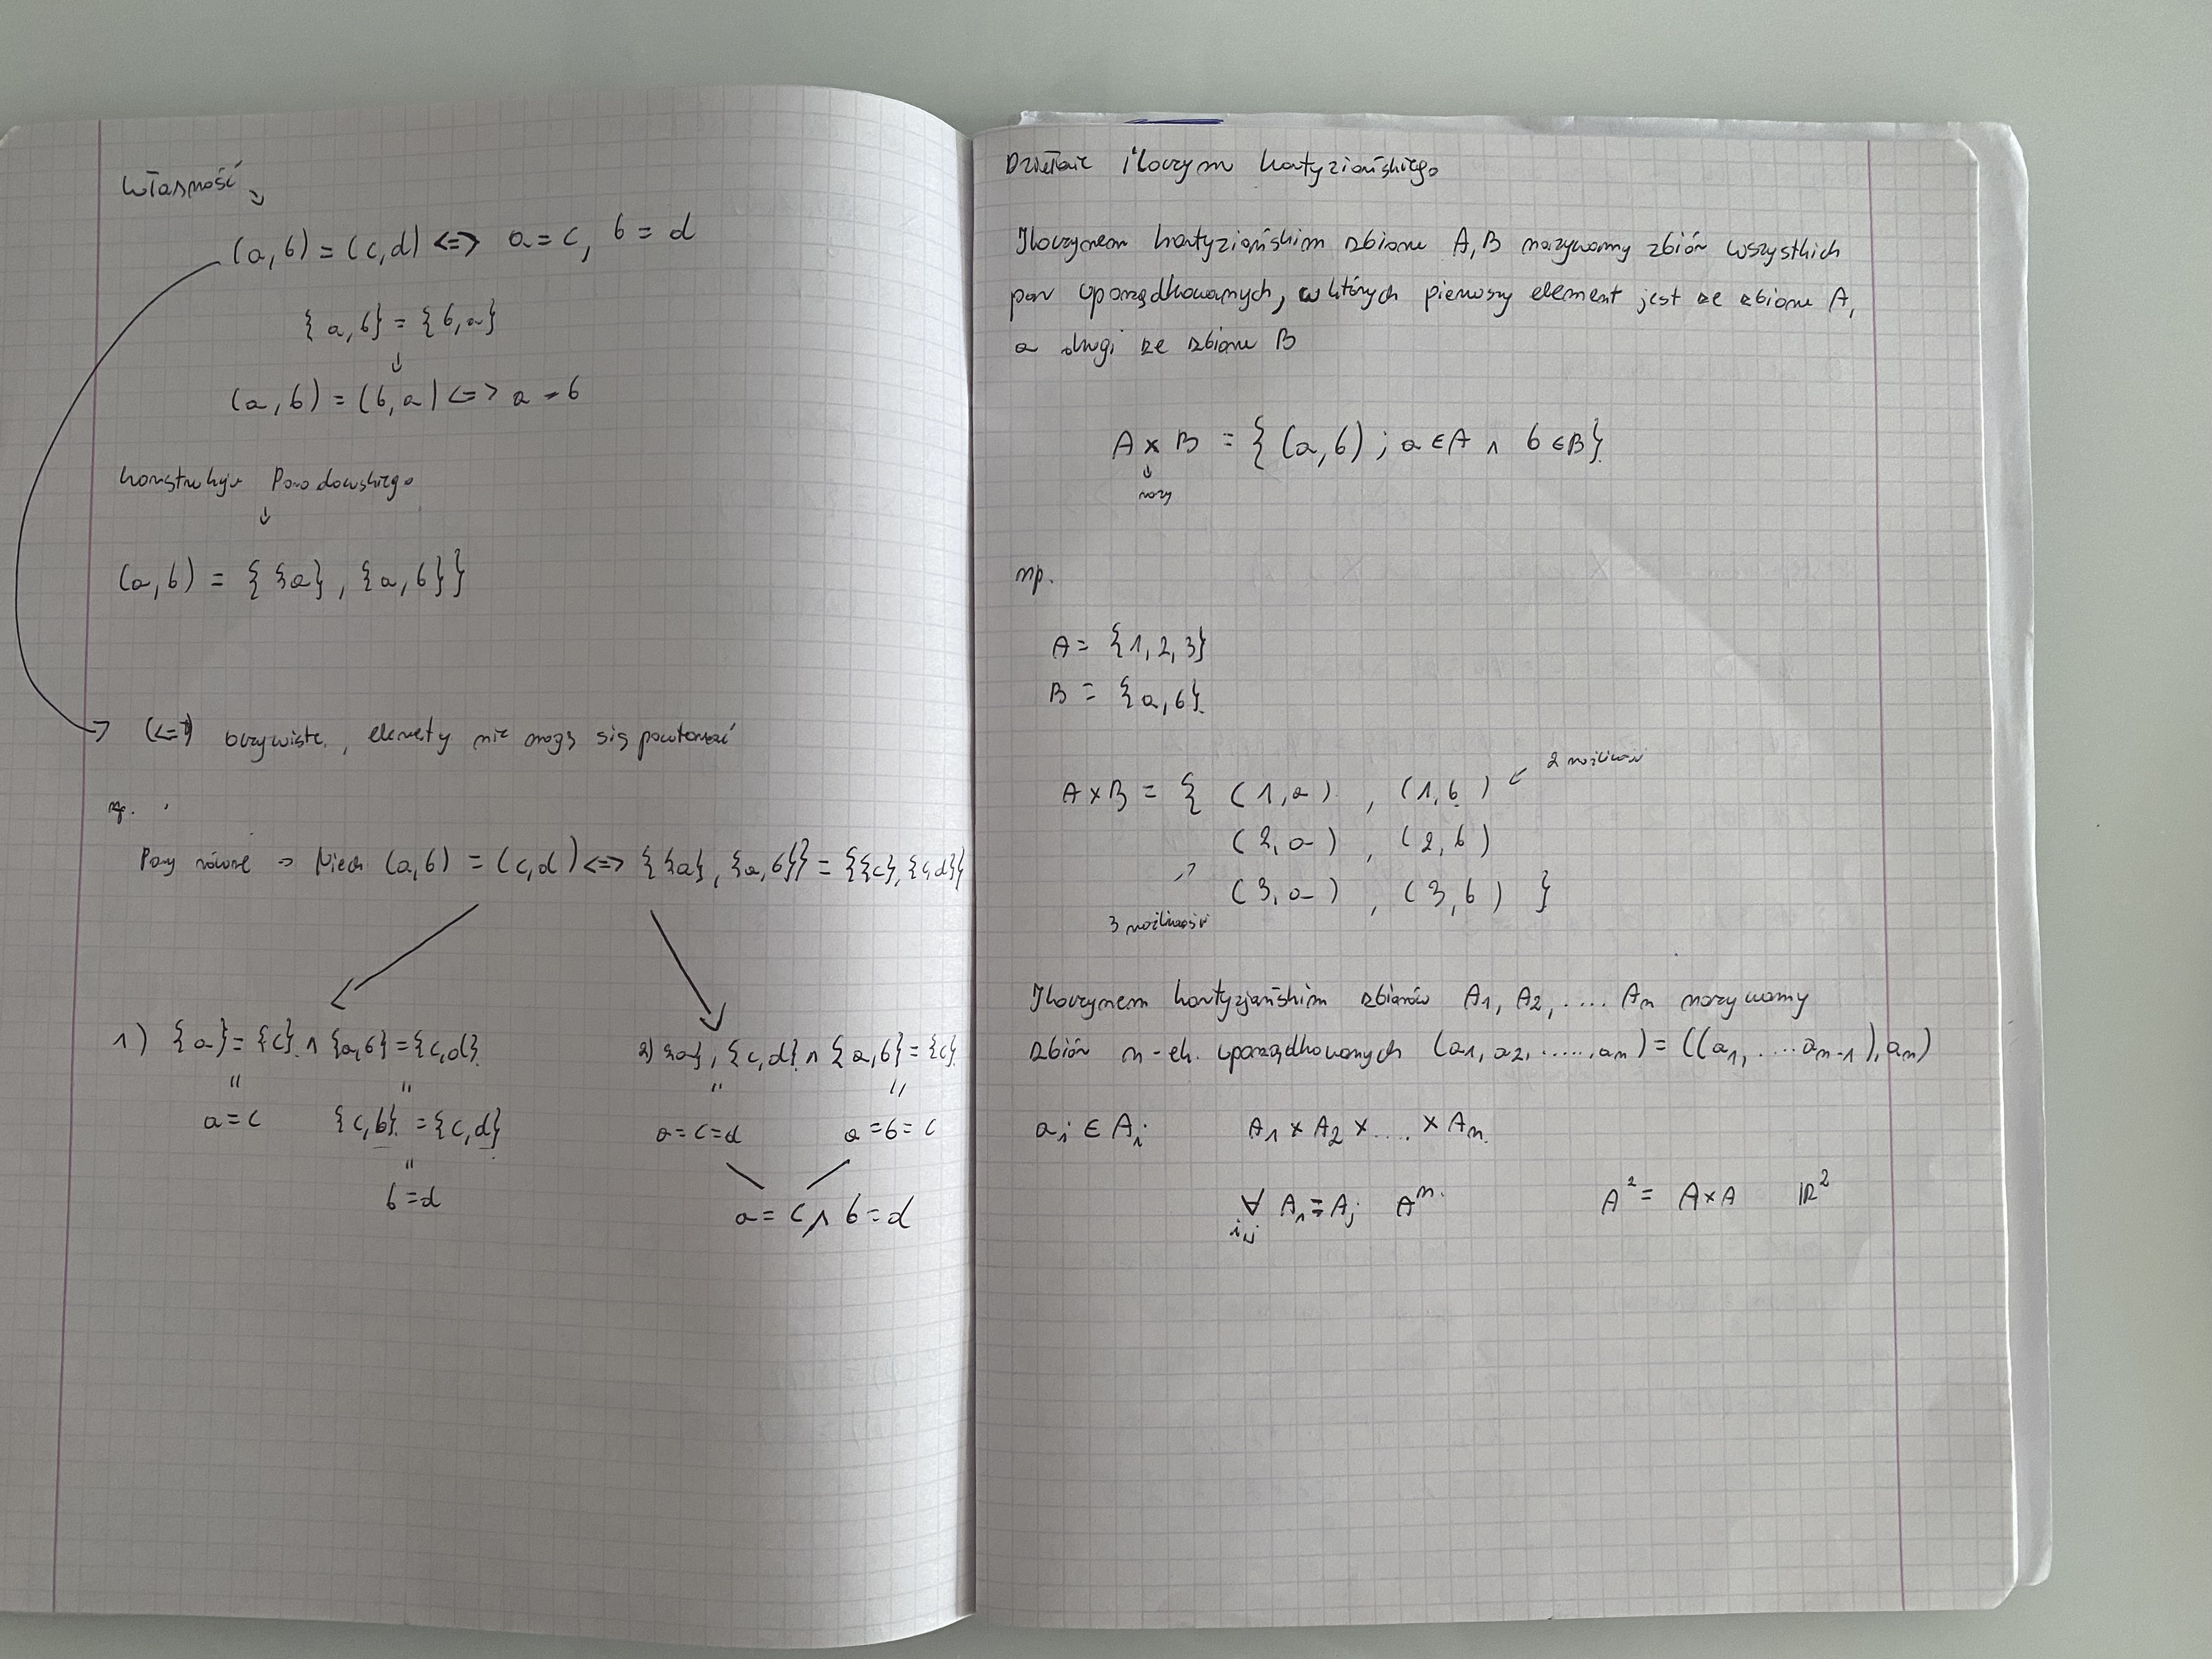 Własność
(a,b) = (c,d) <=> a = c, b = d
{a,b} = {b,a}
(a,b) = (b,a) <=> a = b
(a,b) = {{a}, {a,b}}
(<=) oczywiste, elementy nie mogą się powtarzać
np.
Pary równe → Niech (a,b) = (c,d) <=> {{a}, {a,b}} = {{c}, {c,d}}
1) {a} = {c} ∧ {a,b} = {c,d}
a = c {c,b} = {c,d}
b = d
2) {a}, {c,d} ∧ {a,b} = {c}
a = c = d a = b = c
a = c ∧ b = d
Działanie iloczyn kartezjańskiego
Iloczynem kartyziańskim zbioru A, B nazywamy zbiór wszystkich
par uporządkowanych, w których pierwszy element jest ze zbioru A,
a drugi ze zbioru B
A x B = {(a,b) ; a ∈ A ∧ b ∈ B}
razy
np.
A = {1, 2, 3}
B = {a, b}
2 możliwości
A x B = { (1,a) , (1,b)
(2,a) , (2,b)
(3,a) , (3,b) }
3 możliwości
Iloczynem kartyzjańskim zbiorów A1, A2, .... An nazywamy
zbiór n-el. uporządkowanych (a1, a2, ......, an) = ((a1, .... an-1), an)
ai ∈ Ai A1 x A2 x .... x An
∀ A1 = Aj Aⁿ A² = A x A ℝ²
i,j